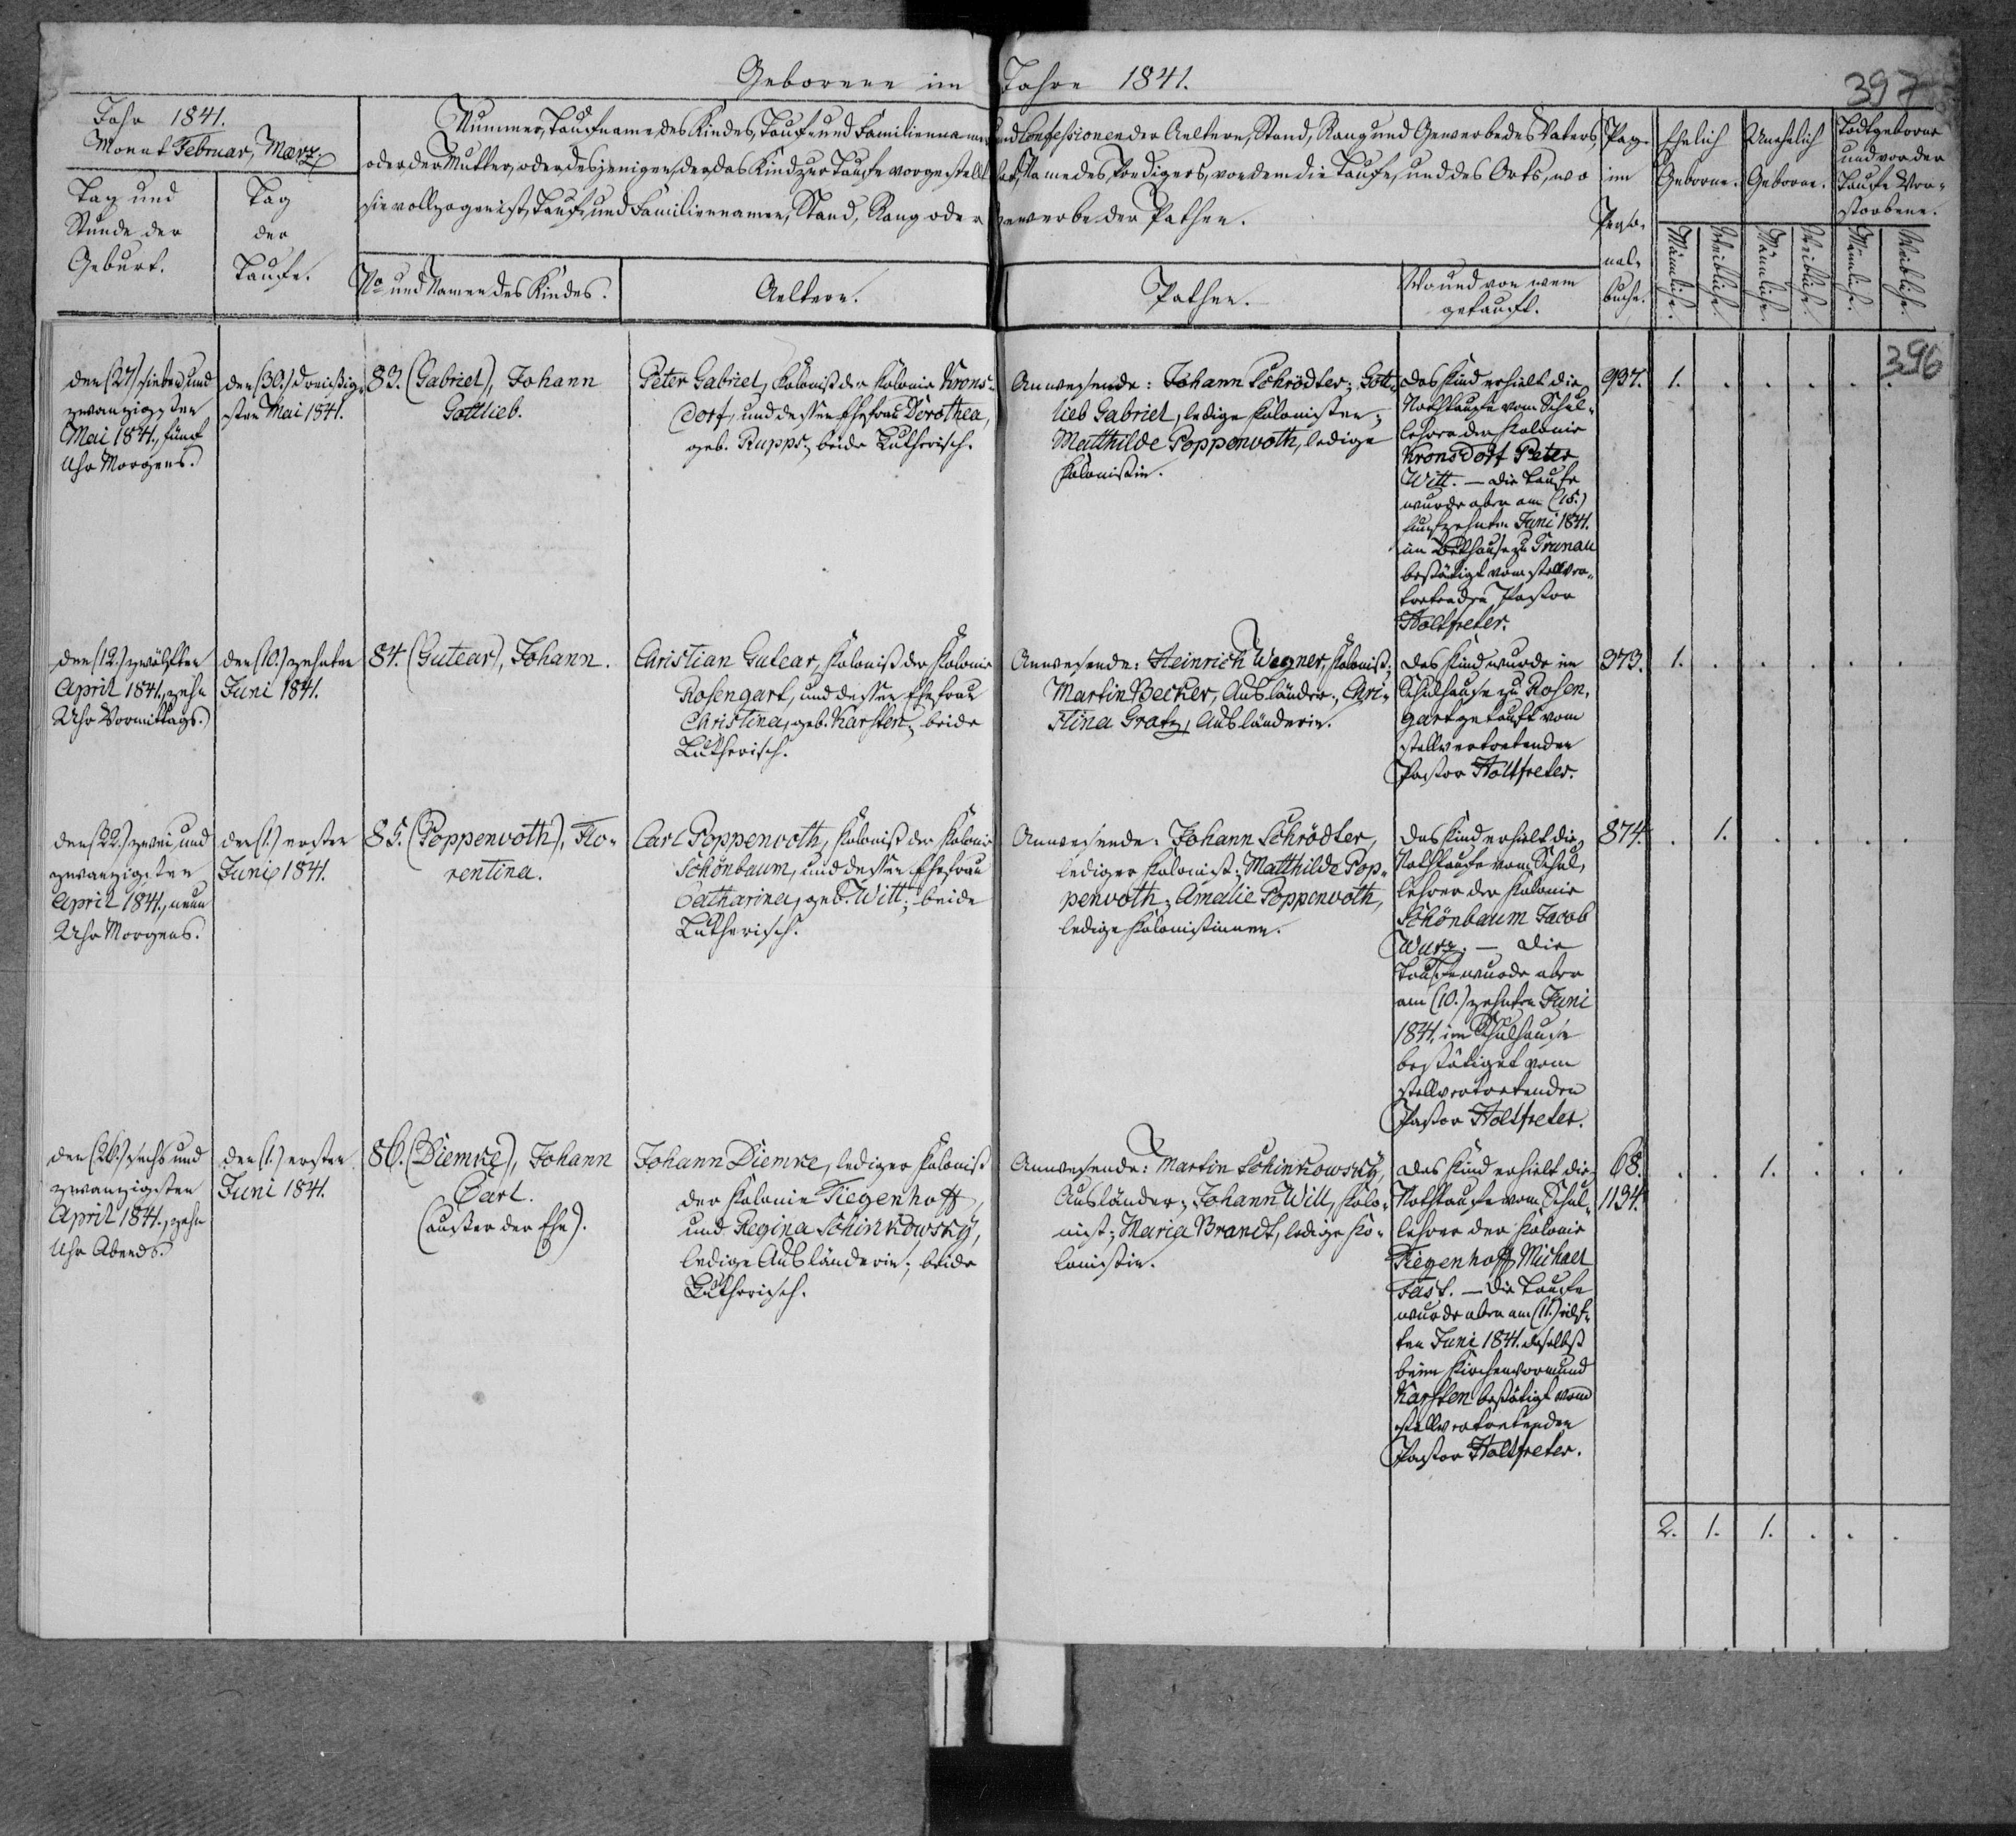 Geborene im Jahre 1841.
397
Jahr 1841.
Monat Februar, Maerz.
Tag und
Stunde der
Geburt.
Tag
der
Taufe.
Nummer, Taufname des Kindes, Tauf- und Familiennamen und Confessionen der Aeltern, Stand, Rang und Gewerbe des Vaters,
oder der Mutter, oder desjenigen, der das Kind zur Taufe vorgestellt hat, Name des Predigers, von dem die Taufe, und des Orts, wo
sie vollzogen ist, Tauf- und Familiennamen, Stand, Rang oder Gewerbe der Pathen.
No und Namen des Kindes.
Aeltern.
Pathen.
Wo und von wem
getauft.
Pag.
im
Perso-
nal-
buche.
Ehelich
Geborne.
Unehelich
Geborne.
Todtgeborne
und vor der
Taufe Ver-
storbene.
Männliche.
Weibliche.
Männliche.
Weibliche.
Männliche.
Weibliche.
396
den (27.) sieben und
zwanzigsten
Mai 1841., fünf
Uhr Morgens.
den (30.) dreißig-
sten Mai 1841.
83. (Gabriel), Johann
Gottlieb.
Peter Gabriel, Kolonist der Kolonie Krons-
dorf, und dessen Ehefrau Dorothea,
geb. Rupps; beide Lutherisch.
Anwesende: Johann Schrödter; Gott-
lieb Gabriel, ledige Kolonisten;
Matthilde Poppenroth, ledige
Kolonistin.
Das Kind erhielt die
Nothtaufe vom Schul-
lehrer der Kolonie
Kronsdorf Peter
Witt. — Die Taufe
wurde aber am (15.)
fünfzehnten Juni 1841.
im Bethause zu Grunau
bestätigt vom stellver-
tretenden Pastor
Holtfreter.
997. 1. . . . . .
den (12.) zwölften
April 1841., zehn
Uhr Vormittags.
den (10.) zehnten
Juni 1841.
84. (Gutear), Johann.
Christian Gutear, Kolonist der Kolonie
Rosengart, und dessen Ehefrau
Christina, geb. Karsten; beide
Lutherisch.
Anwesende: Heinrich Wegner, Kolonist;
Martin Becker, Ausländer; Chri-
stina Gratz, Ausländerin.
Das Kind wurde im
Schulhause zu Rosen-
gart getauft vom
stellvertretenden
Pastor Holtfreter.
373. 1. . . . . .
den (22.) zwei und
zwanzigsten
April 1841., neun
Uhr Morgens.
den (1.) ersten
Juni 1841.
85. (Poppenroth), Flo-
rentina.
Carl Poppenroth, Kolonist der Kolonie
Schönbaum, und dessen Ehefrau
Catharina, geb. Witt; beide
Lutherisch.
Anwesende: Johann Schrödter,
lediger Kolonist; Matthilde Pop-
penroth; Amalie Poppenroth,
ledige Kolonistinnen.
Das Kind erhielt die
Nothtaufe vom Schul-
lehrer der Kolonie
Schönbaum Jacob
Wurz. — Die
Taufe wurde aber
am (10.) zehnten Juni
1841. im Schulhause
bestätiget vom
stellvertretenden
Pastor Holtfreter.
874. . 1. . . . .
den (26.) sechs und
zwanzigsten
April 1841., zehn
Uhr Abends.
den (1.) ersten
Juni 1841.
86. (Diemke), Johann
Carl.
(außer der Ehe).
Johann Diemke, lediger Kolonist
der Kolonie Tiegenhoff,
und Regina Schinkowsky,
ledige Ausländerin; beide
Lutherisch.
Anwesende: Martin Schinkowsky,
Ausländer; Johann Witt, Kolo-
nist; Maria Brandt, ledige Ko-
lonistin.
Das Kind erhielt die
Nothtaufe vom Schul-
lehrer der Kolonie
Tiegenhoff Michael
Fast. — Die Taufe
wurde aber am (11.) eilf-
ten Juni 1841. daselbst
beim Kirchenvormund
Karsten bestätigt vom
stellvertretenden
Pastor Holtfreter.
68. . . 1. . . .
1134.
2. 1. 1. . . .